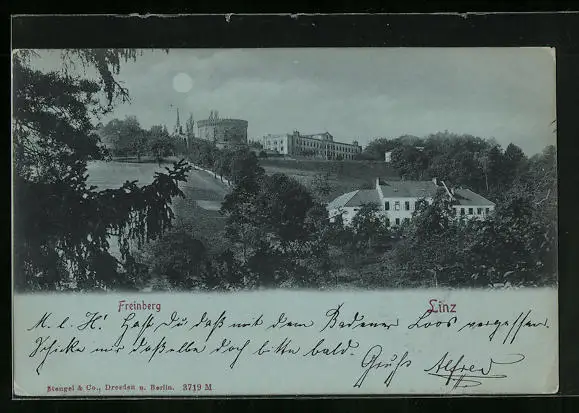 Freinberg
Linz
M. l. H! Hast Du daß mit dem Badener Loos vergessen.
Schicke mir dasselbe doch bitte bald. Gruß Alfred
Stengel & Co., Dresden u. Berlin. 3719 M